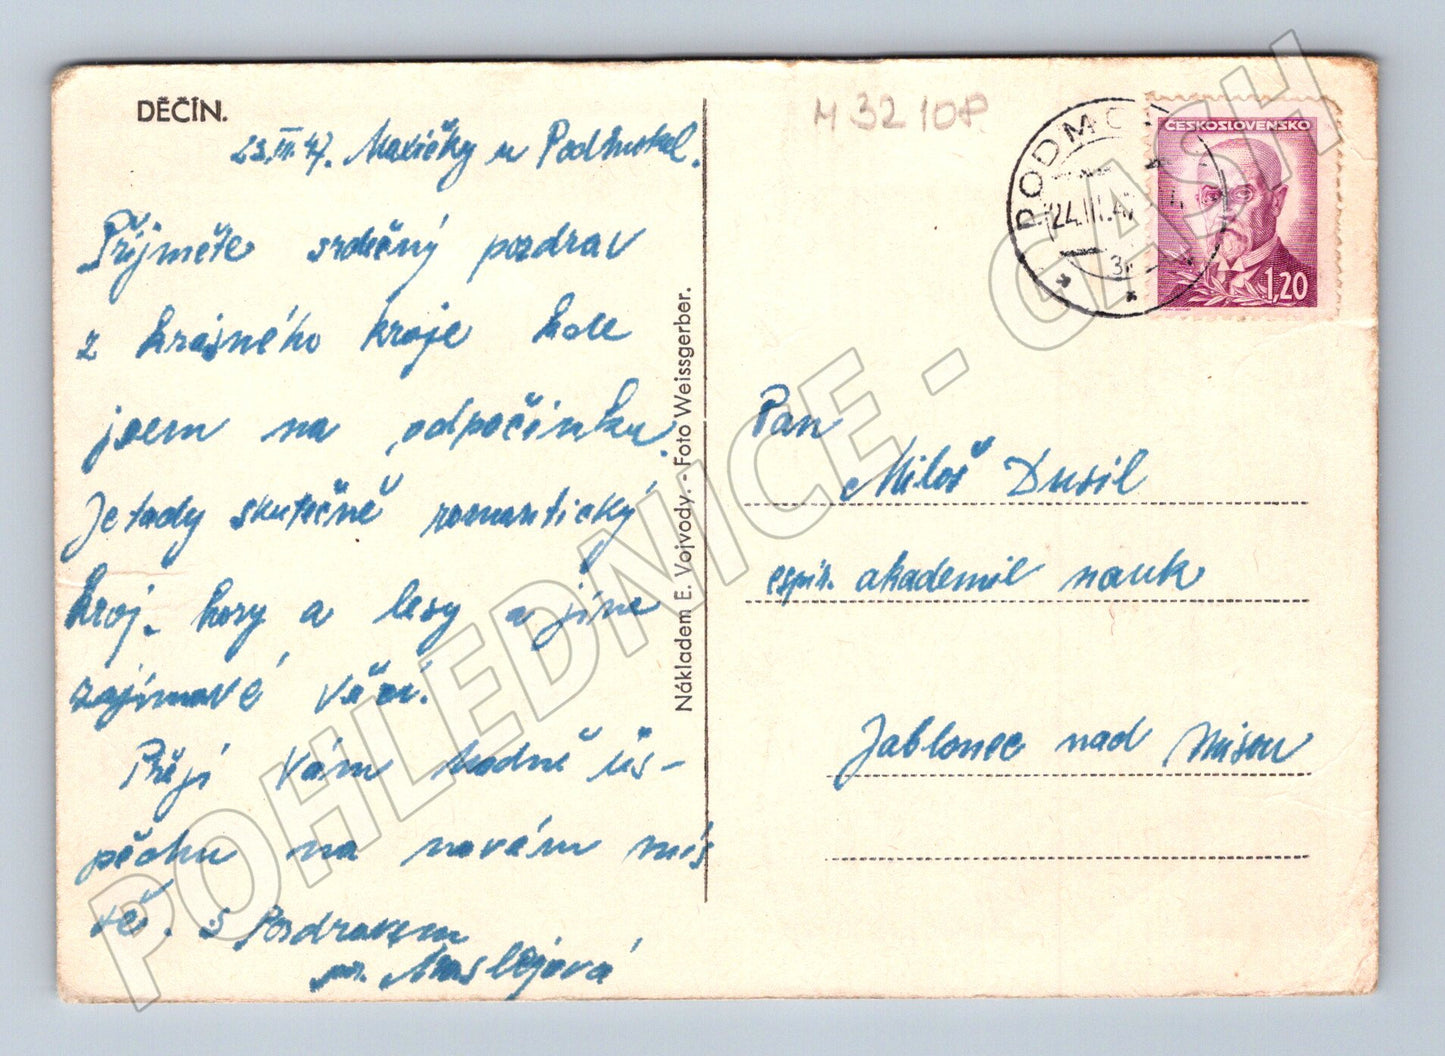 DĚČÍN.
23.III.47. Maxičky u Podmokel.
Přijměte srdečný pozdrav
z krásného kraje kde
jsem na odpočinku.
Je tady skutečně romantický
kraj. hory a lesy a jiné
zajímavé věci.
Přeji Vám hodně ús-
pěchu na novém mís
tě. S Pozdravem
Maslejová
Nákladem E. Vojvody. - Foto Weissgerber.
M 32 10P
PODMO
24.III.47
3
ČESKOSLOVENSKO
1,20
Pan
Miloš Dusil
akademie nauk
Jablonec nad Nisou
POHLEDNICE - GASH